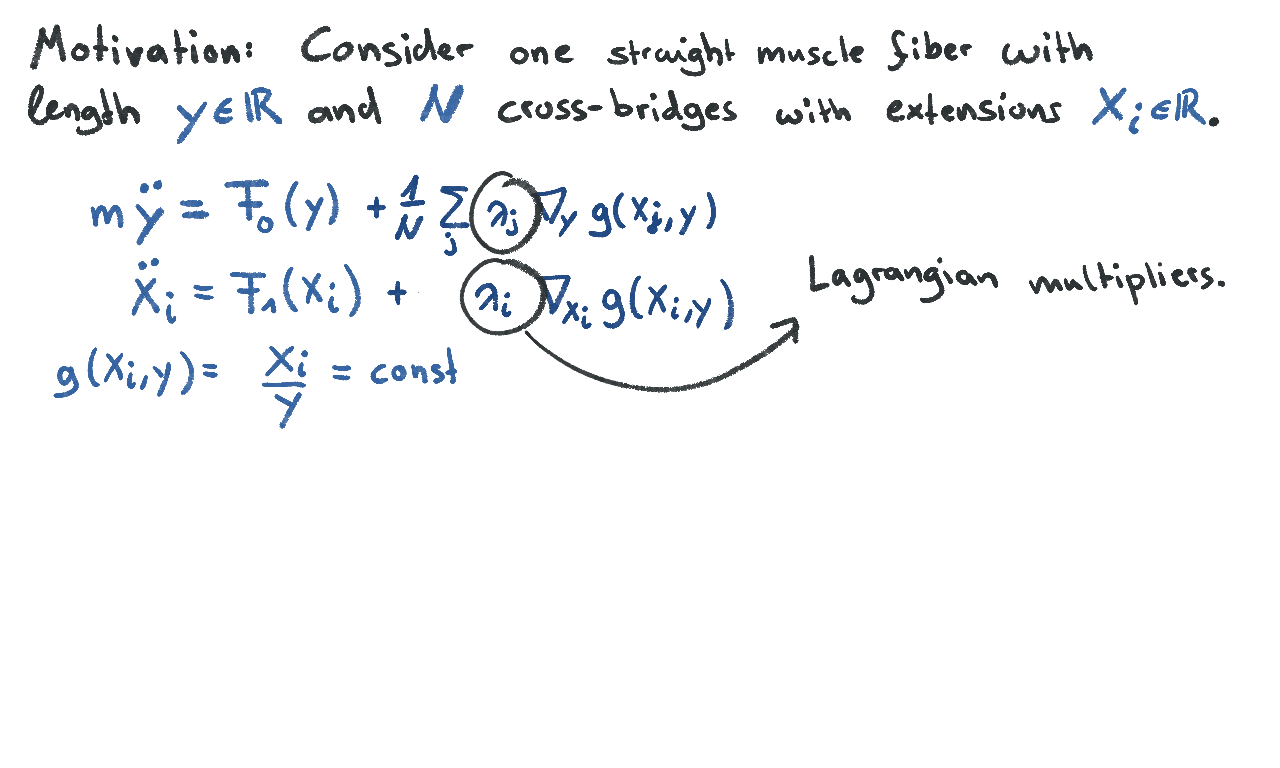 Motivation: Consider one straight muscle fiber with
length y ∈ ℝ and N cross-bridges with extensions Xᵢ ∈ ℝ.
m ÿ = F₀(y) + 1/N ∑ⱼ λⱼ ∇_y g(Xⱼ, y)
Ẍᵢ = F₁(Xᵢ) + λᵢ ∇_{Xᵢ} g(Xᵢ, y)
Lagrangian multipliers.
g(Xᵢ, y) = Xᵢ/y = const